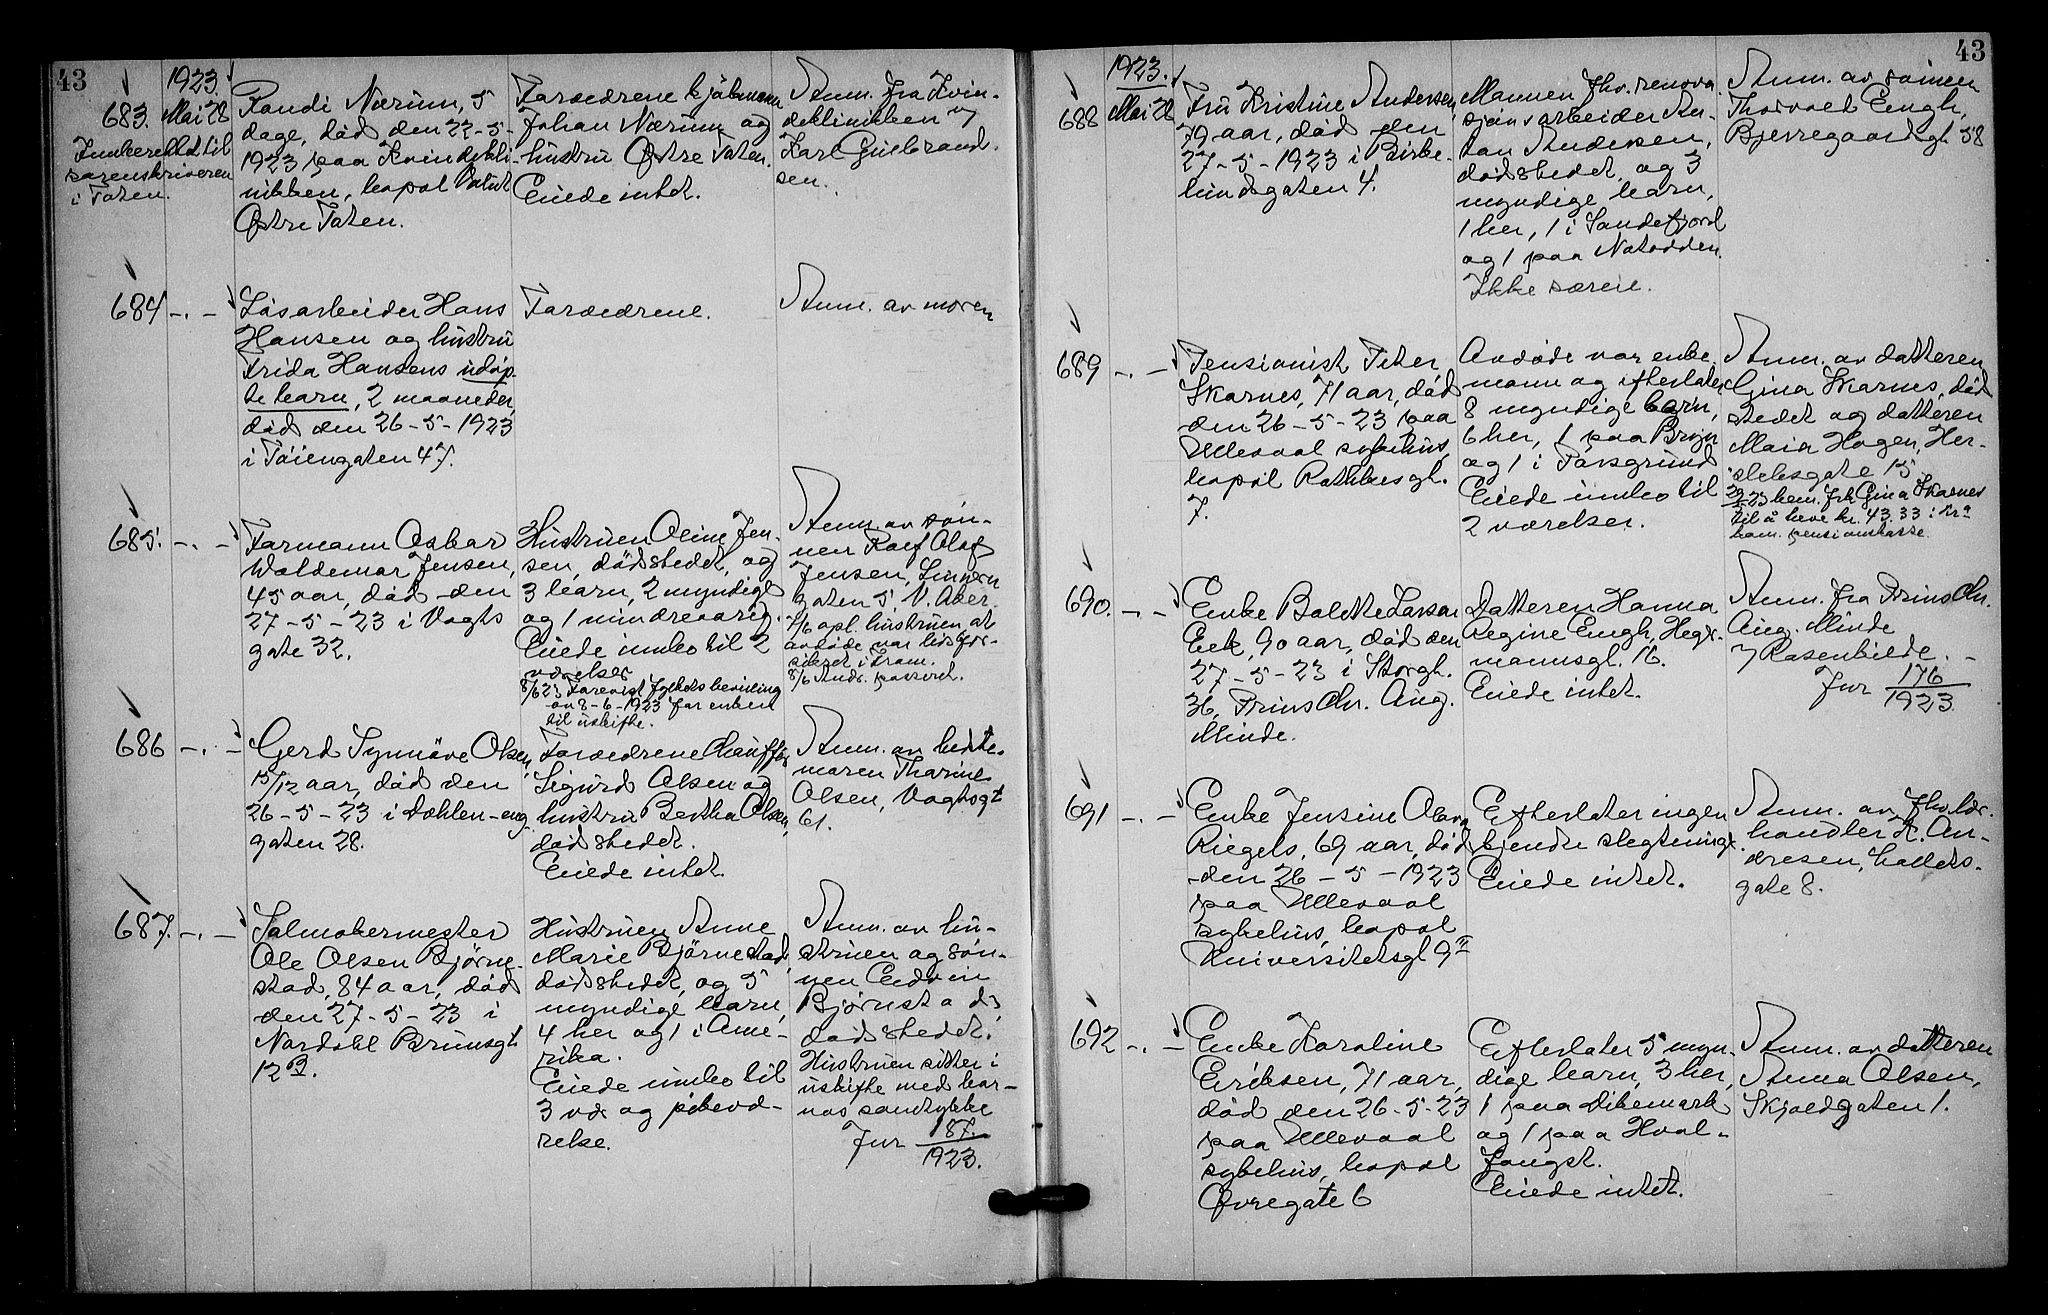 43
1923.
683. Mai 28
Randi Nærum, 5
dage, død den 22-5-
1923 paa Kvindekli-
nikken, bopæl
Østre Toten.
i Toten.
Forældrene kjøbmann
Johan Nærum og
hustru Østre Toten.
Eiede intet.
Anm. fra Kvin-
deklinikken v/
Karl Gulbrand-
sen.
684 -.-
Løsarbeider Hans
Hansen og hustru
Frida Hansens udøp-
te barn, 2 maaneder,
død den 26-5-1923
i Tøiengaten 47.
Forældrene.
Anm. av moren
685. -.-
Formann Oskar
Waldemar Jensen,
45 aar, død den
27-5-23 i Vogts
gate 32.
Hustruen Oline Jen-
sen, dødsstedet, og
3 barn, 2 myndige
og 1 mindreaarig.
Eiede innbo til 2
værelser
8/6 23 Forevist fylkets bevilling
av 8-6-1923 for enken
til uskifte.
Anm. av søn-
nen Rolf Olaf
Jensen,
gaten 5, V. Aker.
7/6 opl. hustruen at
avdøde var livsfor-
sikret i Fram.
686 -.-
Gerd Synnøve Olsen,
15/12 aar, død den
26-5-23 i Dæhlen-eng-
gaten 28.
Forældrene Chauffør
Sigurd Olsen og
hustru Bertha Olsen,
dødsstedet.
Eiede intet.
Anm. av beste-
moren Thorine
Olsen, Vogtsgt
61.
687. -.-
Salmakermester
Ole Olsen Bjørne-
stad, 84 aar, død
den 27-5-23 i
Nordahl Brunsgt
12 B.
Hustruen Anne
Marie Bjørnestad,
dødsstedet, og 5
myndige barn,
4 her og 1 i Ame-
rika.
Eiede innbo til
3 vær og pikevæ-
relse.
Anm. av hu-
struen og søn-
nen Edvin
Bjørnstad,
dødsstedet.
Hustruen sitter i
uskifte med bar-
nas samtykke
Jnr 87.
1923.
43
1923.
688 Mai 28
Fru Kristine Andersen,
79 aar, død den
27-5-1923 i Birke-
lundsgaten 4.
Mannen fhv. renova-
sjonsarbeider An-
ton Andersen,
dødsstedet, og 3
myndige barn,
1 her, 1 i Sandefjord
og 1 paa Notodden.
Ikke særeie.
Anm. av
Thorvald Engh,
Bjerregaardsgt 58
689 -.-
Pensionist Peter
Skarnes, 71 aar, død
den 26-5-23 paa
Ullevaal sykehus,
bopæl Rathkesgt.
7.
Avdøde var enke-
mann og efterlater
8 myndige barn,
6 her, 1 paa Bryn
og 1 i Porsgrund
Eiede innbo til
2 værelser.
Anm. av datteren
Gina Skarnes, død-
stedet og datteren
Maria Hagen, Her-
slebsgate 15.
bem. frk Gina Skarnes
til å heve kr. 43.33 i Kra
kom. pensionskasse.
690. -.-
Enke Bolette Larsen
Eek, 90 aar, død den
27-5-23 i Storgt.
36, Prins Chr. Aug.
Minde.
Datteren Hanna
Regine Engh, Hegr-
mannsgt. 16.
Eiede intet.
Anm. fra Prins Chr.
Aug. Minde
v/ Rosenkilde.
Jnr 176
1923
691 -.-
Enke Jensine Olava
Riegels, 69 aar, død
den 26-5-1923
paa Ullevaal
sykehus, bopæl
Universitetsgt 9 II
Efterlater ingen
kjendte slegtninge.
Eiede intet.
Anm. av fhv. lær-
handler H. An-
dresen,
gate 8.
692 -.-
Enke Karoline
Eriksen, 71 aar,
død den 26-5-23
paa Ullevaal
sykehus, bopæl
Øvregate 6
Efterlater 5 myn-
dige barn, 3 her,
1 paa Dikemark
og 1 paa Hval-
fangst.
Eiede intet.
Anm. av datteren
Anna Olsen,
Skjoldgaten 1.